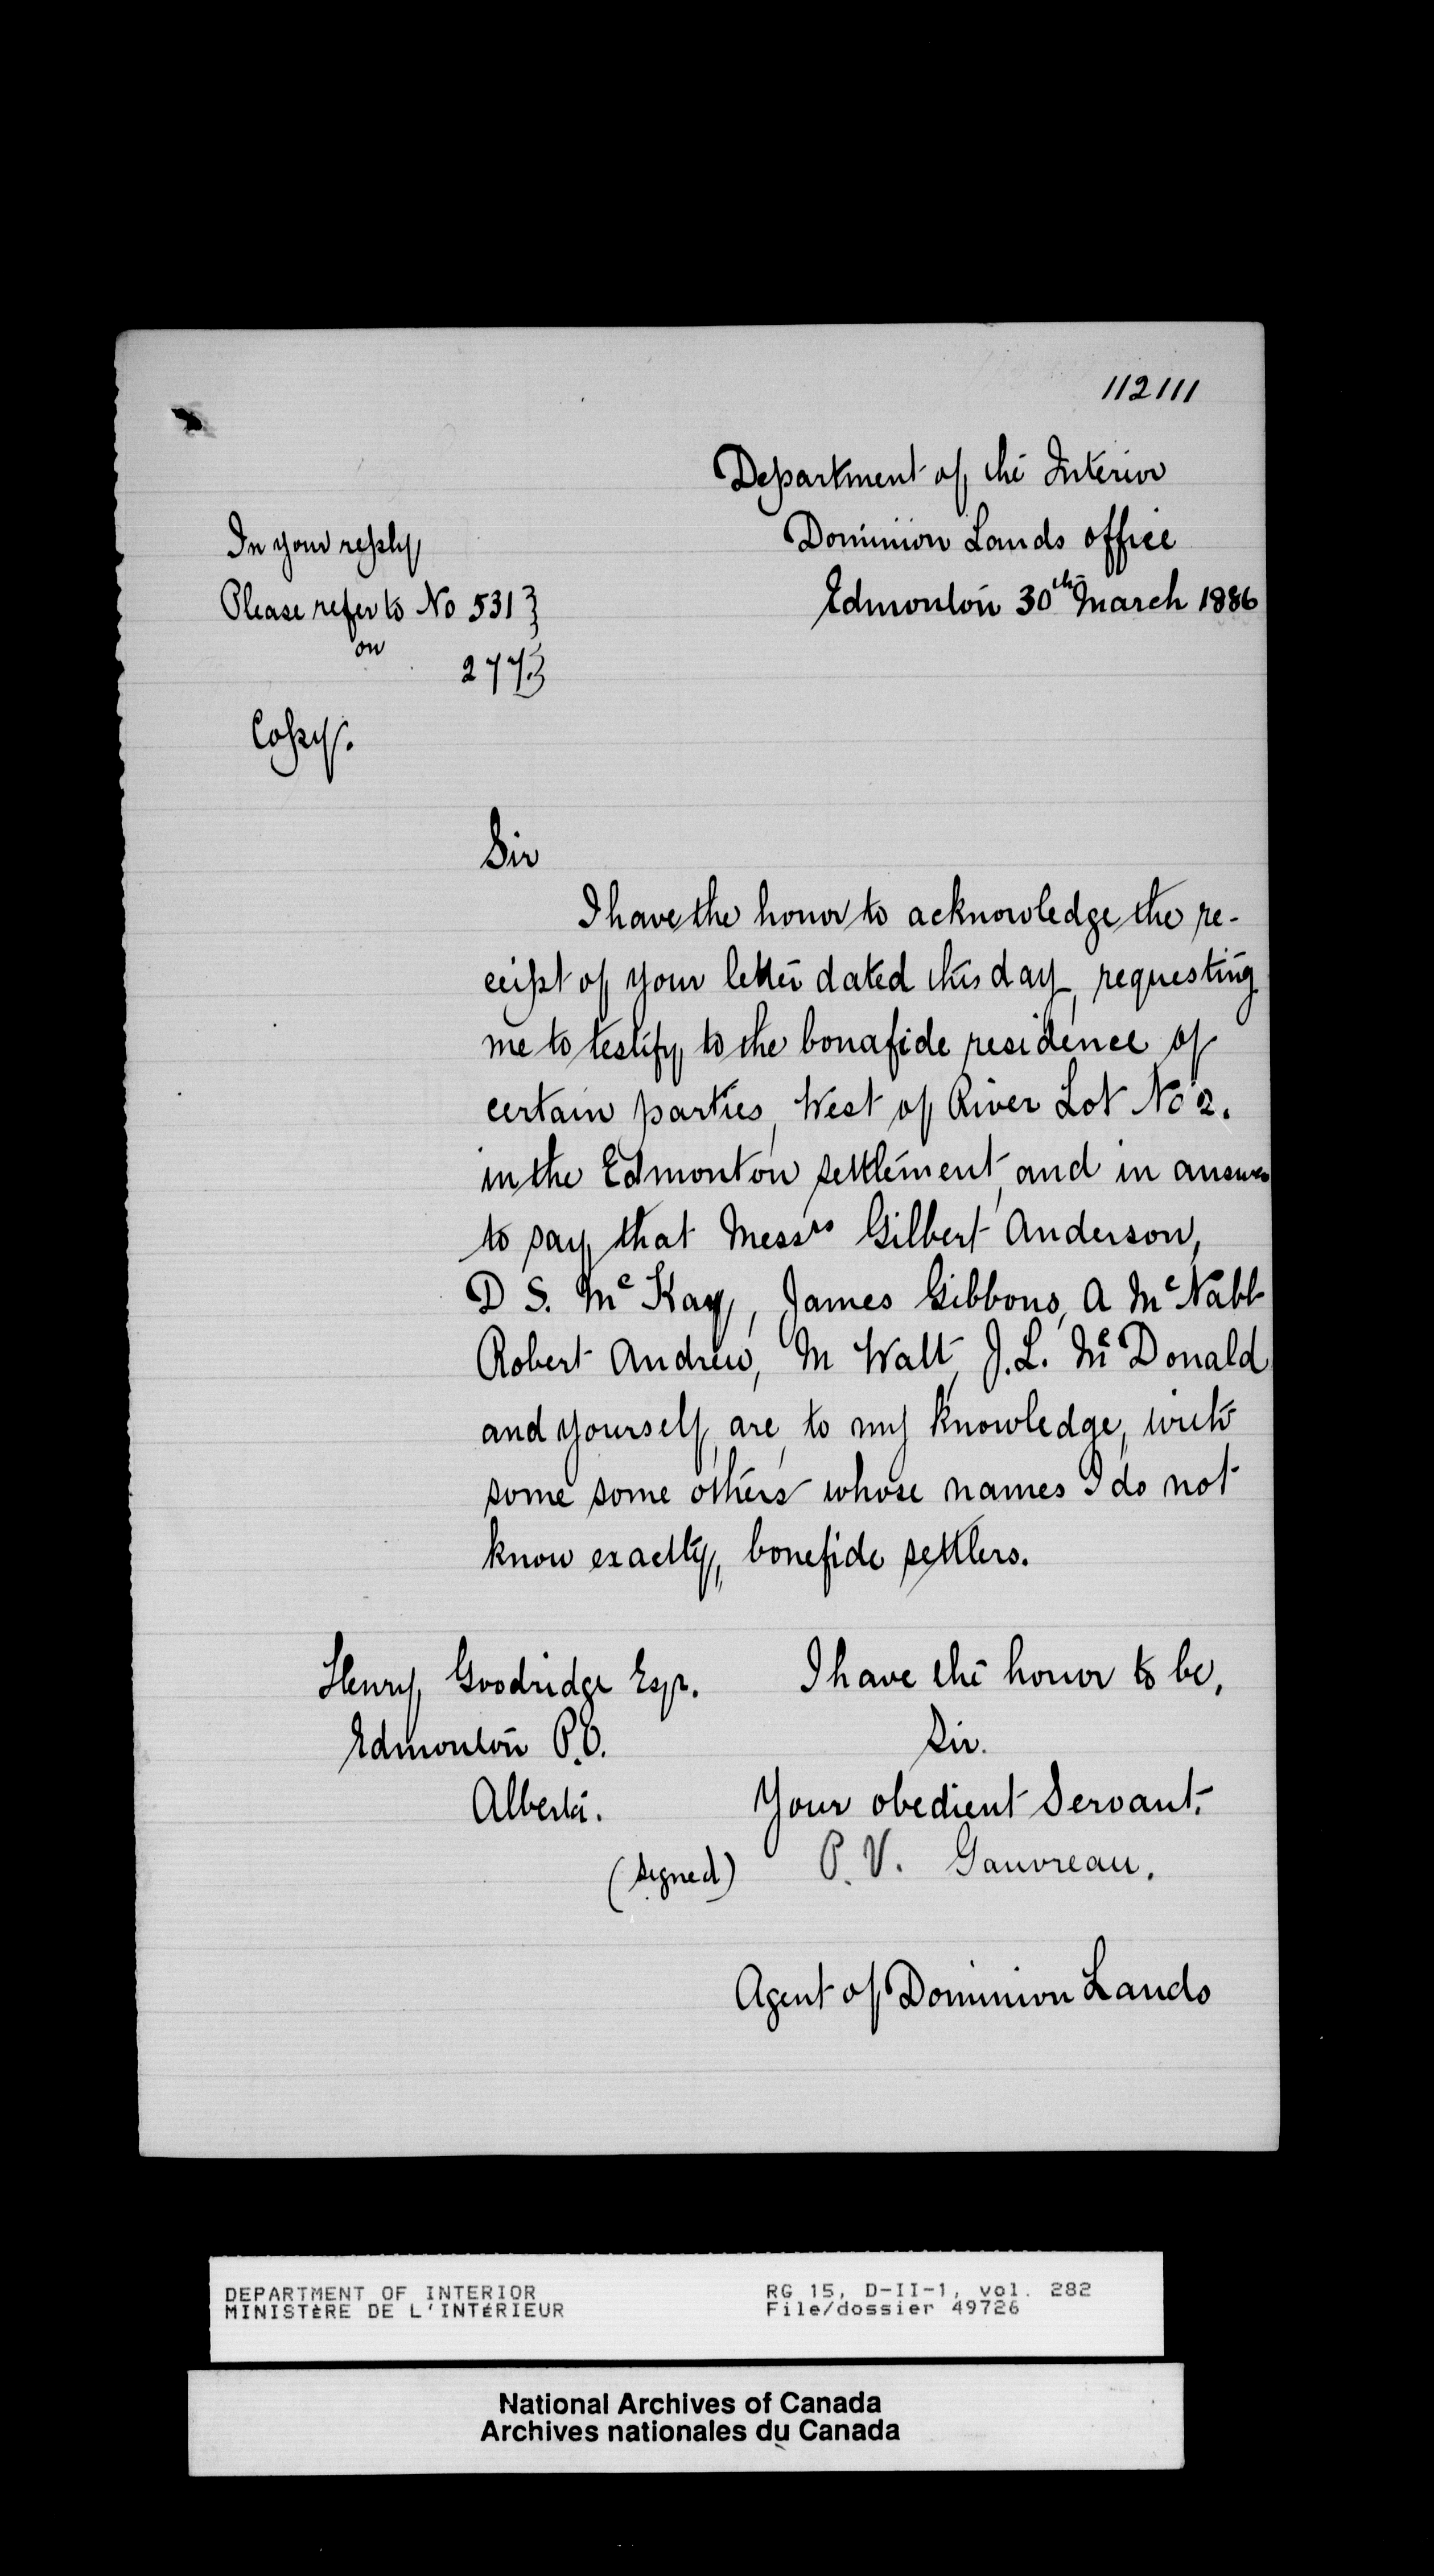 112111
Department of the Interior
Dominion Lands Office
Edmonton 30th March 1886
In your reply
Please refer to No 531 }
on
277 }
Copy.
Sir
I have the honor to acknowledge the re-
ceipt of your letter dated this day, requesting
me to testify to the bonafide residence of
certain parties, West of River Lot No 2.
in the Edmonton settlement, and in answer
to say that Messrs Gilbert Anderson,
D S. McKay, James Gibbons, A McNabb
Robert Andrew, M Walt, J.L. McDonald
and yourself, are, to my knowledge, with
some some others whose names I do not
know exactly, bonefide settlers.
I have the honor to be,
Sir.
Your obedient Servant.
(signed) P. V. Gauvreau.
Agent of Dominion Lands
Henry Goodridge Esqr.
Edmonton P.O.
Alberta.
DEPARTMENT OF INTERIOR
MINISTÈRE DE L'INTÉRIEUR
RG 15, D-II-1, vol. 282
File/dossier 49726
National Archives of Canada
Archives nationales du Canada